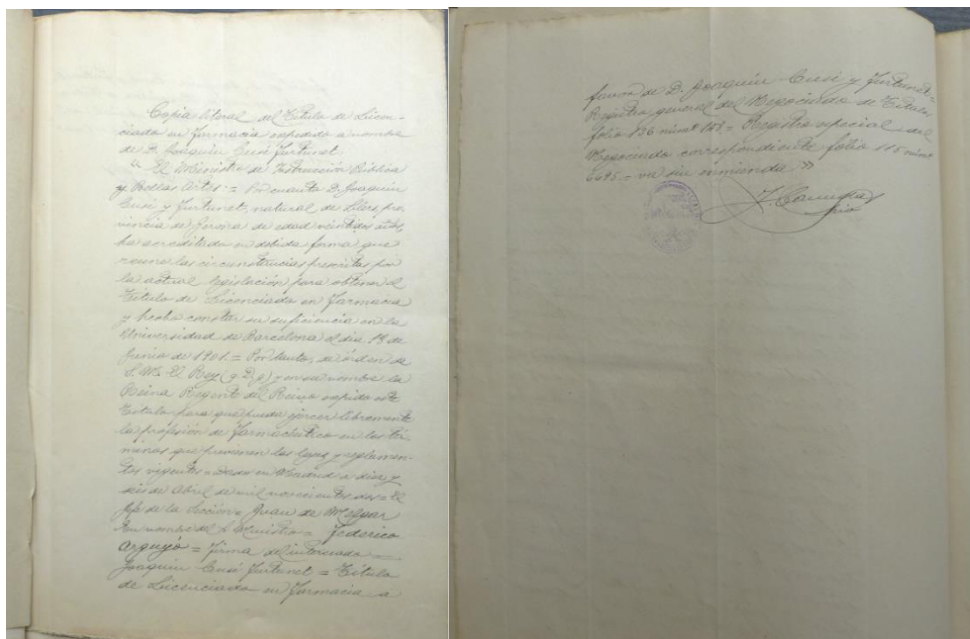 Copia literal del Título de Licen-
ciado en Farmacia expedido a nombre
de D. Joaquin Cusí Furtunet.
"El Ministro de Instrucción Pública
y Bellas Artes = Por cuanto D. Joaquin
Cusí y Furtunet, natural de Llers pro-
vincia de Gerona de edad veintidos años,
ha acreditado en debida forma que
reune las circunstancias prescritas por
la actual legislación para obtener el
Título de Licenciado en Farmacia
y hecho constar su suficiencia en la
Universidad de Barcelona el dia 18 de
Junio de 1901. = Por tanto, de órden de
S. M. El Rey (q. D. g.) y en su nombre la
Reina Regente del Reino expido este
Título para que pueda ejercer libremente
la profesión de Farmacéutico en los tér-
minos que previenen las leyes y reglamen-
tos vigentes = Dado en Madrid a diez y
seis de Abril de mil novecientos dos = El
Jefe de la Sección = Juan de Melgar
En nombre del S. Ministro = Federico
= Firma del interesado =
Joaquin Cusí Furtunet = Título
de Licenciado en Farmacia a
favor de D. Joaquin Cusí y Furtunet =
Registro general del Negociado de Títulos
folio 126 num.º = Registro especial del
Negociado correspondiente folio 115 num.º
6695 = va sin enmienda"